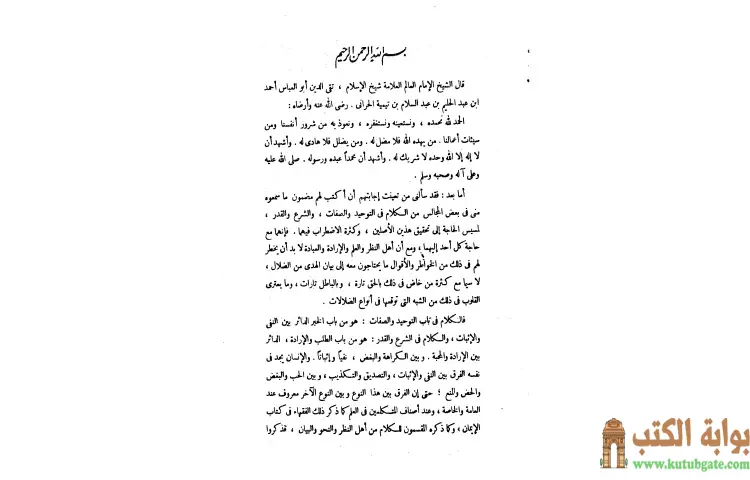 بسم الله الرحمن الرحيم
قال الشيخ الإمام العالم العلامة شيخ الإسلام ، تقى الدين أبو العباس أحمد
ابن عبد الحليم بن عبد السلام بن تيمية الحرانى . رضى الله عنه وأرضاه :
الحمد لله نحمده ، ونستعينه ونستغفره ، ونعوذ به من شرور أنفسنا ومن
سيئات أعمالنا . من يهده الله فلا مضل له . ومن يضلل فلا هادى له . وأشهد أن
لا إله إلا الله وحده لا شريك له . وأشهد أن محمداً عبده ورسوله . صلى الله عليه
وعلى آله وصحبه وسلم .
أما بعد : فقد سألنى من تعينت إجابتهم أن أكتب لهم مضمون ما سمعوه
منى فى بعض المجالس من الكلام فى التوحيد والصفات ، والشرع والقدر ،
لمسيس الحاجة إلى تحقيق هذين الأصلين ، وكثرة الاضطراب فيهما . فإنهما مع
حاجة كل أحد إليهما ، ومع أن أهل النظر والعلم والإرادة والعبادة لا بد أن يخطر
لهم فى ذلك من الخواطر والأقوال ما يحتاجون معه إلى بيان الهدى من الضلال ،
لا سيما مع كثرة من خاض فى ذلك بالحق تارة ، وبالباطل تارات ، وما يعترى
القلوب فى ذلك من الشبه التى توقعها فى أنواع الضلالات .
فالكلام فى باب التوحيد والصفات : هو من باب الخبر الدائر بين النفى
والإثبات ، والكلام فى الشرع والقدر : هو من باب الطلب والإرادة ، الدائر
بين الإرادة والمحبة . وبين الكراهة والبغض ، نفياً وإثباتاً . والإنسان يجد فى
نفسه الفرق بين النفى والإثبات ، والتصديق والتكذيب ، وبين الحب والبغض
والحض والمنع ؛ حتى إن الفرق بين هذا النوع وبين النوع الآخر معروف عند
العامة والخاصة ، وعند أصناف المتكلمين فى العلم كما ذكر ذلك الفقهاء فى كتاب
الإيمان ، وكما ذكره المقسمون للكلام من أهل النظر والنحو والبيان ، فذكروا
بوابة الكتب
www.kutubgate.com